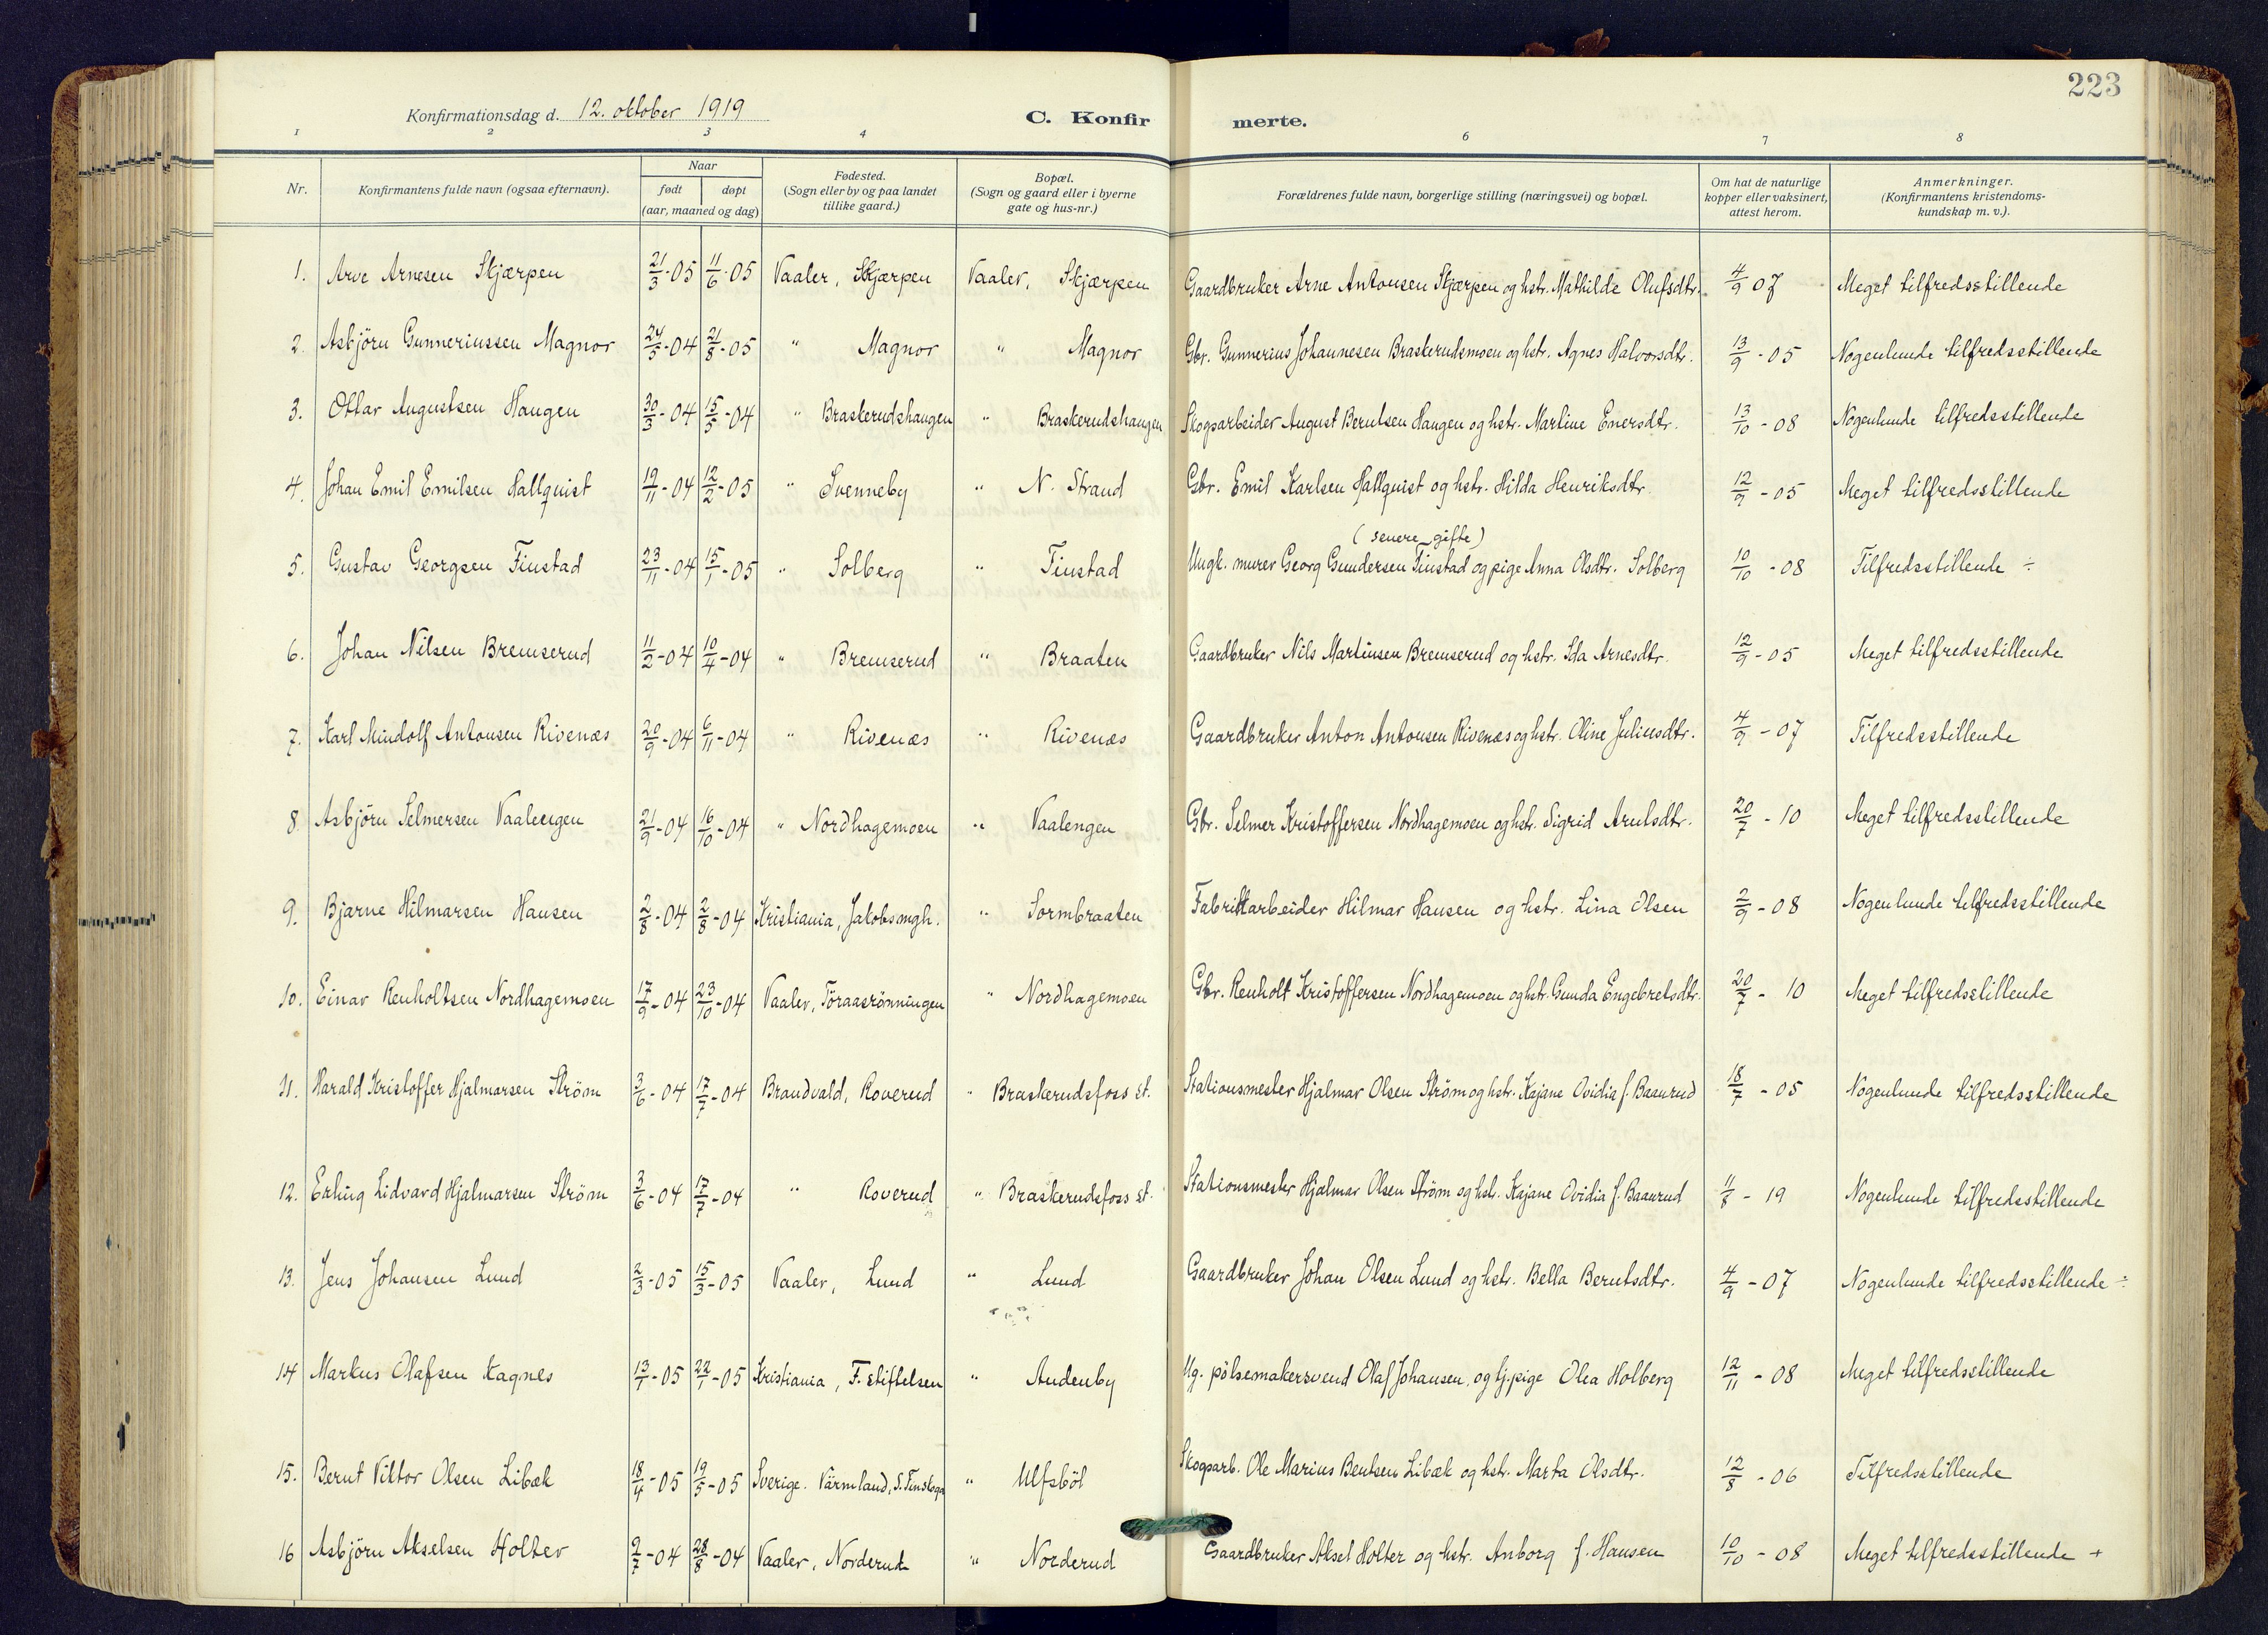 223
Konfirmationsdag d. 12. oktober 1919
C. Konfirmerte.
1 2 3 4 6 7 8
Nr. Konfirmantens fulde navn (ogsaa efternavn). Naar født døpt (aar, maaned og dag) Fødested. (Sogn eller by og paa landet tillike gaard.) Bopæl. (Sogn og gaard eller i byerne gate og hus-nr.) Forældrenes fulde navn, borgerlige stilling (næringsvei) og bopæl. Om hat de naturlige kopper eller vaksinert, attest herom. Anmerkninger. (Konfirmantens kristendoms-kundskap m. v.).
1. Arve Arnesen Skjærpen 21/3-05 11/6-05 Vaaler, Skjærpen Vaaler, Skjærpen Gaardbruker Arne Antonsen Skjærpen og hstr. Mathilde Olufsdtr. 4/9 07 Meget tilfredsstillende
2. Asbjörn Gunneriussen Magnor 24/5-04 21/8-05 " Magnor " Magnor Gbr. Gunnerius Johannesen Braskerudsmoen og hstr. Agnes Halvorsdtr. 13/9-05 Nogenlunde tilfredsstillende
3. Ottar Augustsen Haugen 30/3-04 15/5-04 " Braskerudshaugen " Braskerudshaugen Skogsarbeider August Berntsen Haugen og hstr. Martine Enersdtr. 13/10-08 Nogenlunde tilfredsstillende
4. Johan Emil Emilsen Hallquist 19/11-04 12/2-05 " Svenneby " N. Strand Gbr. Emil Karlsen Hallquist og hstr. Hilda Henriksdtr. 12/9-05 Meget tilfredsstillende
(senere gifte)
5. Gustav Georgsen Finstad 23/11-04 15/1-05 " Solberg " Finstad Ungk. murer Georg Gundersen Finstad og pige Anna Olsdtr. Solberg 10/10-08 Tilfredsstillende ÷
6. Johan Nilsen Bremserud 11/2-04 10/4-04 " Bremserud " Braaten Gaardbruker Nils Martinsen Bremserud og hstr. Ida Arnesdtr. 12/9-05 Meget tilfredsstillende
7. Karl Mindolf Antonsen Rivenæs 20/9-04 6/11-04 " Rivenæs " Rivenæs Gaardbruker Anton Antonsen Rivenæs og hstr. Oline Juliusdtr. 4/9-07 Tilfredsstillende
8 Asbjörn Selmersen Vaalengen 21/9-04 16/10-04 " Nordhagemoen " Vaalengen Gbr. Selmer Kristoffersen Nordhagemoen og hstr. Sigrid Arntsdtr. 20/7-10 Meget tilfredsstillende
9. Bjarne Hilmarsen Hansen 2/8-04 2/8-04 Kristiania, Jakobsmgh. " Sormbraaten Fabrikkarbeider Hilmar Hansen og hstr. Lina Olsen 2/9-08 Nogenlunde tilfredsstillende
10. Einar Renholtsen Nordhagemoen 17/9-04 23/10-04 Vaaler, Töraasrönningen " Nordhagemoen Gbr. Renholt Kristoffersen Nordhagemoen og hstr. Gunda Engebretsdtr. 20/7-10 Meget tilfredsstillende
11. Harald Kristoffer Hjalmarsen Ström 3/6-04 17/7-04 Brandvald, Roverud " Braskerudsfoss st. Stationsmester Hjalmar Olsen Ström og hstr. Kajane Ovidia f. Baanrud 18/7-05 Nogenlunde tilfredsstillende
12. Erling Lidvard Hjalmarsen Ström 3/6-04 17/7-04 " Roverud " Braskerudsfoss st. Stationsmester Hjalmar Olsen Ström og hstr. Kajane Ovidia f. Baanrud 11/8-19 Nogenlunde tilfredsstillende
13. Jens Johansen Lund 2/3-05 15/3-05 Vaaler, Lund " Lund Gaardbruker Johan Olsen Lund og hstr. Bella Berntsdtr. 4/9-07 Nogenlunde tilfredsstillende ÷
14 Markus Olafsen Kagnes 13/1-05 22/1-05 Kristiania, F. stiftelsen " Audenby Ug. pölsemakersvend Olaf Johansen, og tj.pige Olea Holberg 12/11-08 Meget tilfredsstillende
15. Bernt Viktor Olsen Libæk 18/4-05 19/5-05 Sverige. Värmland, S. Finskoga " Ulfsböl Skogsarb. Ole Marius Bentsen Libæk og hstr. Marta Olsdtr. 12/8-06 Tilfredsstillende
16 Asbjörn Akselsen Holter 9/7-04 28/8-04 Vaaler, Norderud " Norderud Gaardbruker Aksel Holter og hstr. Anborg f. Hansen 10/10-08 Meget tilfredsstillende +